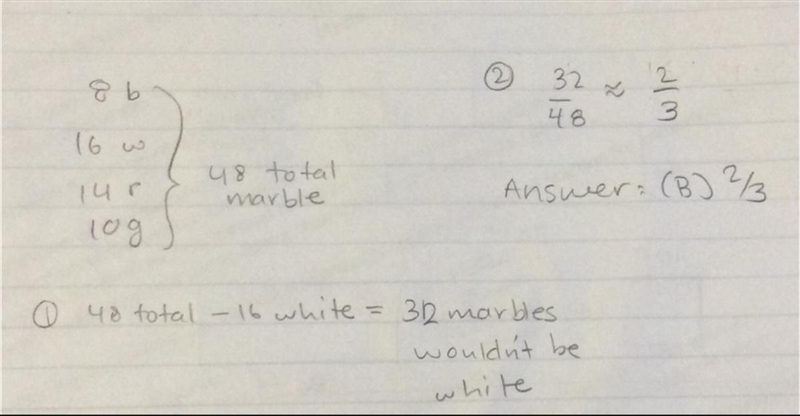 8 b
16 w
14 r
10g
48 total
marble
① 48 total - 16 white = 32 marbles
wouldn't be
white
② 32/48 ≈ 2/3
Answer: (B) 2/3